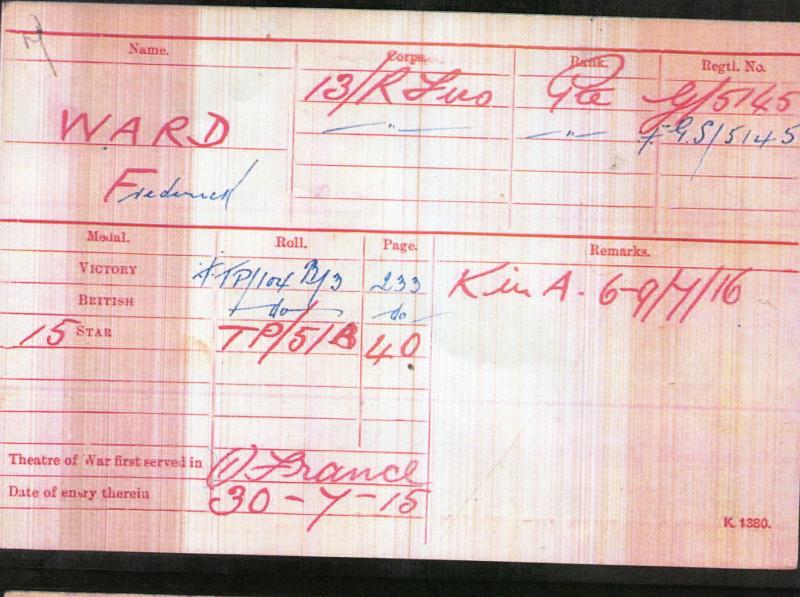 Name. Corps. Rank. Regtl. No.
13/R Fus Pte G/5145
WARD — " — — " — G.S/5145
Frederick
Medal. Roll. Page. Remarks.
VICTORY TP/104 B/3 233 K in A. 6-9/7/16
BRITISH do do
15 STAR TP/5/B 40
Theatre of War first served in (1) France
Date of entry therein 30-7-15
K. 1380.